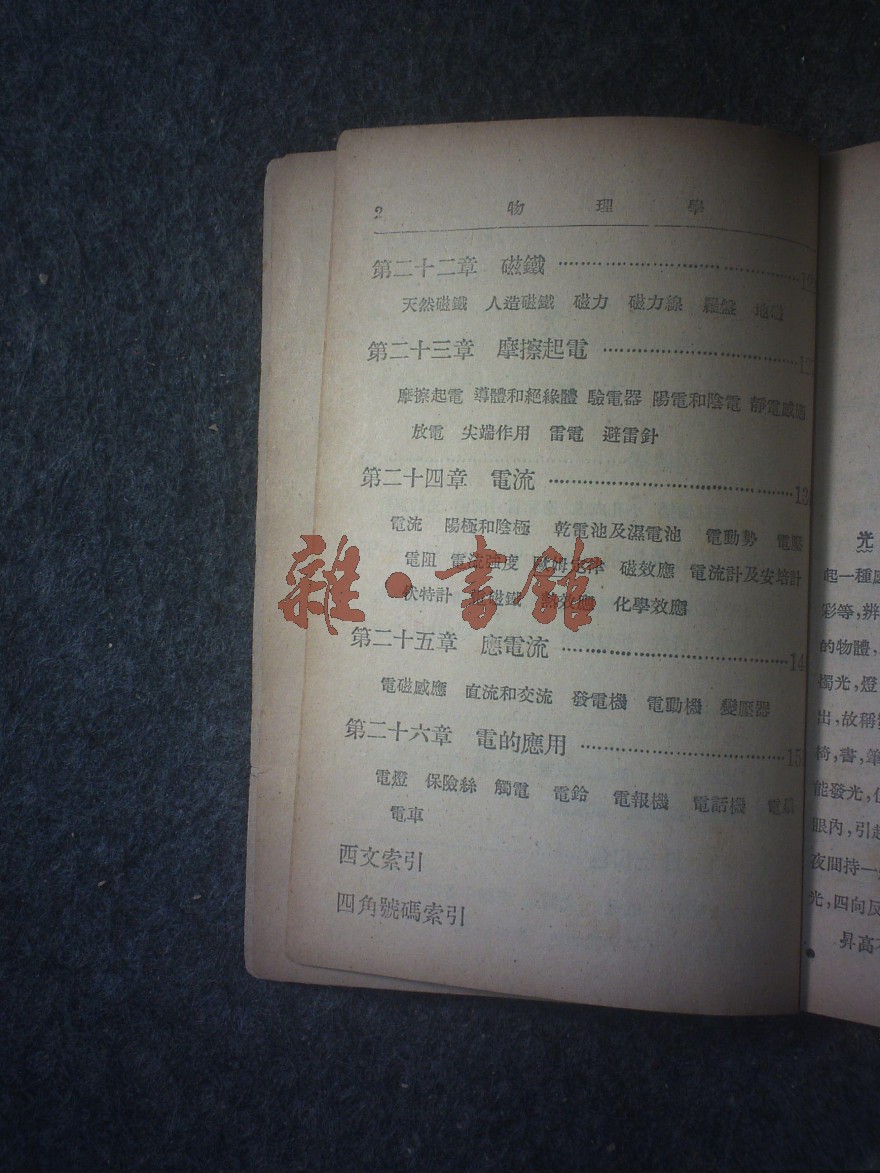 2 物理學
第二十二章 磁鐵
天然磁鐵 人造磁鐵 磁力 磁力線 羅盤 地磁
第二十三章 摩擦起電
摩擦起電 導體和絕緣體 驗電器 陽電和陰電 靜電感應
放電 尖端作用 雷電 避雷針
第二十四章 電流 13
電流 陽極和陰極 乾電池及濕電池 電動勢 電壓
電阻 電流強度 歐姆定律 磁效應 電流計及安培計
伏特計 電磁鐵 熱效應 化學效應
第二十五章 應電流 14
電磁感應 直流和交流 發電機 電動機 變壓器
第二十六章 電的應用 15
電燈 保險絲 觸電 電鈴 電報機 電話機
電車
西文索引
四角號碼索引
雜·書館
光
起一種
彩等,辨
的物體,
燭光,燈
出,故稱
椅,書,筆
能發光,
眼內,引起
夜間持一
光,四向反
昇高